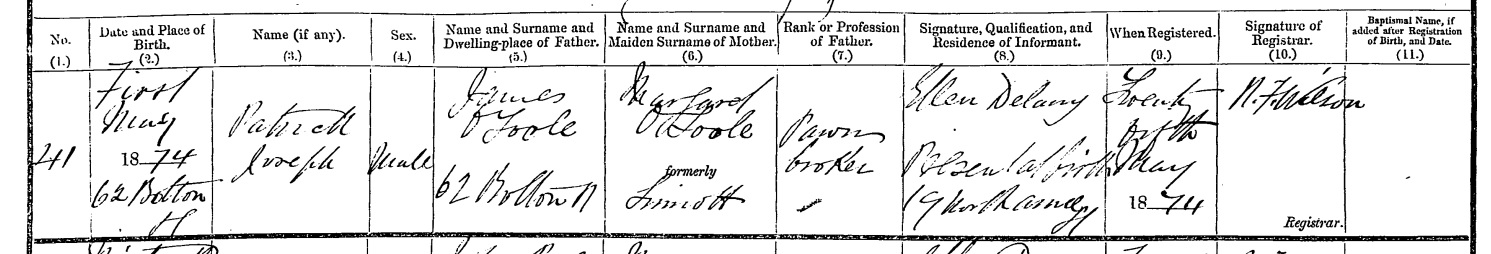 No.
(1.)
Date and Place of
Birth.
(2.)
Name (if any).
(3.)
Sex.
(4.)
Name and Surname and
Dwelling-place of Father.
(5.)
Name and Surname and
Maiden Surname of Mother.
(6.)
Rank or Profession
of Father.
(7.)
Signature, Qualification, and
Residence of Informant.
(8.)
When Registered.
(9.)
Signature of
Registrar.
(10.)
Baptismal Name, if
added after Registration
of Birth, and Date.
(11.)
41
First
May
1874
62 Bolton
St
Patrick
Joseph
Male
James
O'Toole
62 Bolton St
Margaret
O'Toole
formerly
Sinnott
Pawn
broker
Ellen Delany
Present at birth
19 North Anne St
Twenty
fifth
May
1874
N. F. Wilson
Registrar.